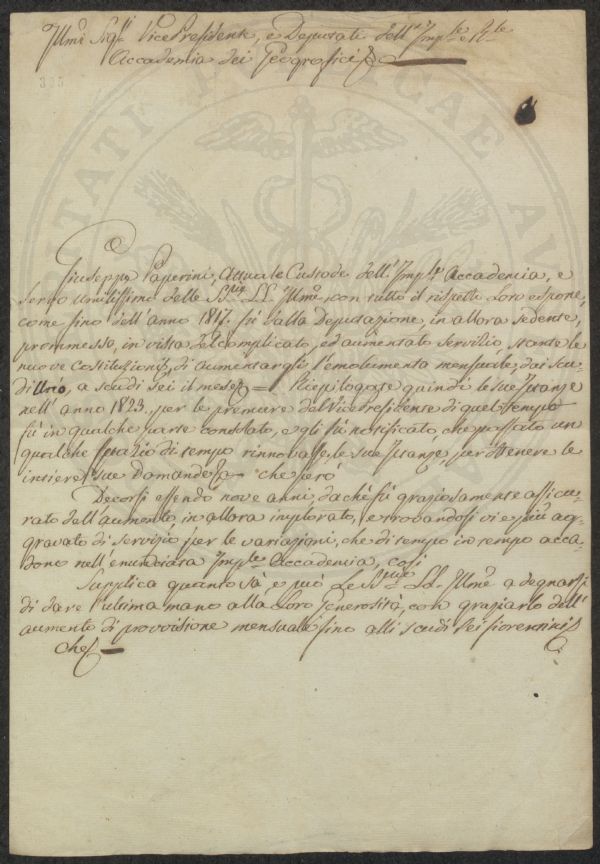 Illmi Sigri Vice Presidente, e Deputati dell' Imple e Rle
Accademia dei Georgofili
335
VERITATI MEDICAE
Giuseppe Paperini, attuale Custode dell' Imple Accademia, e
Servo umilissimo delle LL. Illme con tutto il rispetto Loro espone,
come fino dell' anno 1817. fù dalla Deputazione, in allora sedente,
prommesso, in vista del complicato, ed aumentato servizio, stante le
nuove Costituzioni, di aumentargli l'emolumento mensuale, dai scu-
di a scudi sei il mese = Riepilogate quindi le sue Istanze
nell' anno 1823., per le premure del Vice Presidente di quel tempo
fù in qualche parte consolato, e gli fù notificato, che passato un
qualche spazio di tempo rinnovasse, le sue Istanze, per ottenere le
intiere sue Domande che però
Decorsi essendo nove anni, dachè fù graziosamente assicu-
rato dell'aumento, in allora implorato, e trovandosi vie più ag-
gravato di servizio per le variazioni, che di tempo in tempo acca-
dono nell'enunciata Imple Accademia, così
Supplica quanto sà, e può Le LL. Illme a degnarsi
di dare l'ultima mano alla Loro Generosità, con graziarlo dell'
aumento di provvisione mensuale fino alli scudi sei fiorentini
Che